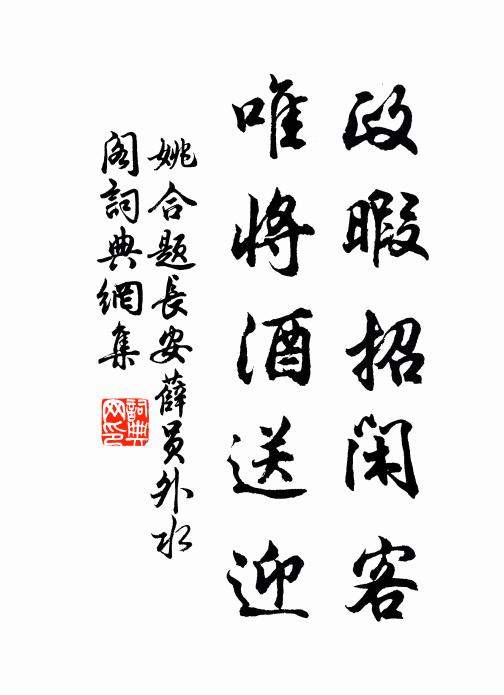 政暇招闲客
唯将酒送迎
姚合题長安薛员外水
阁詞典網集
詞典
网印